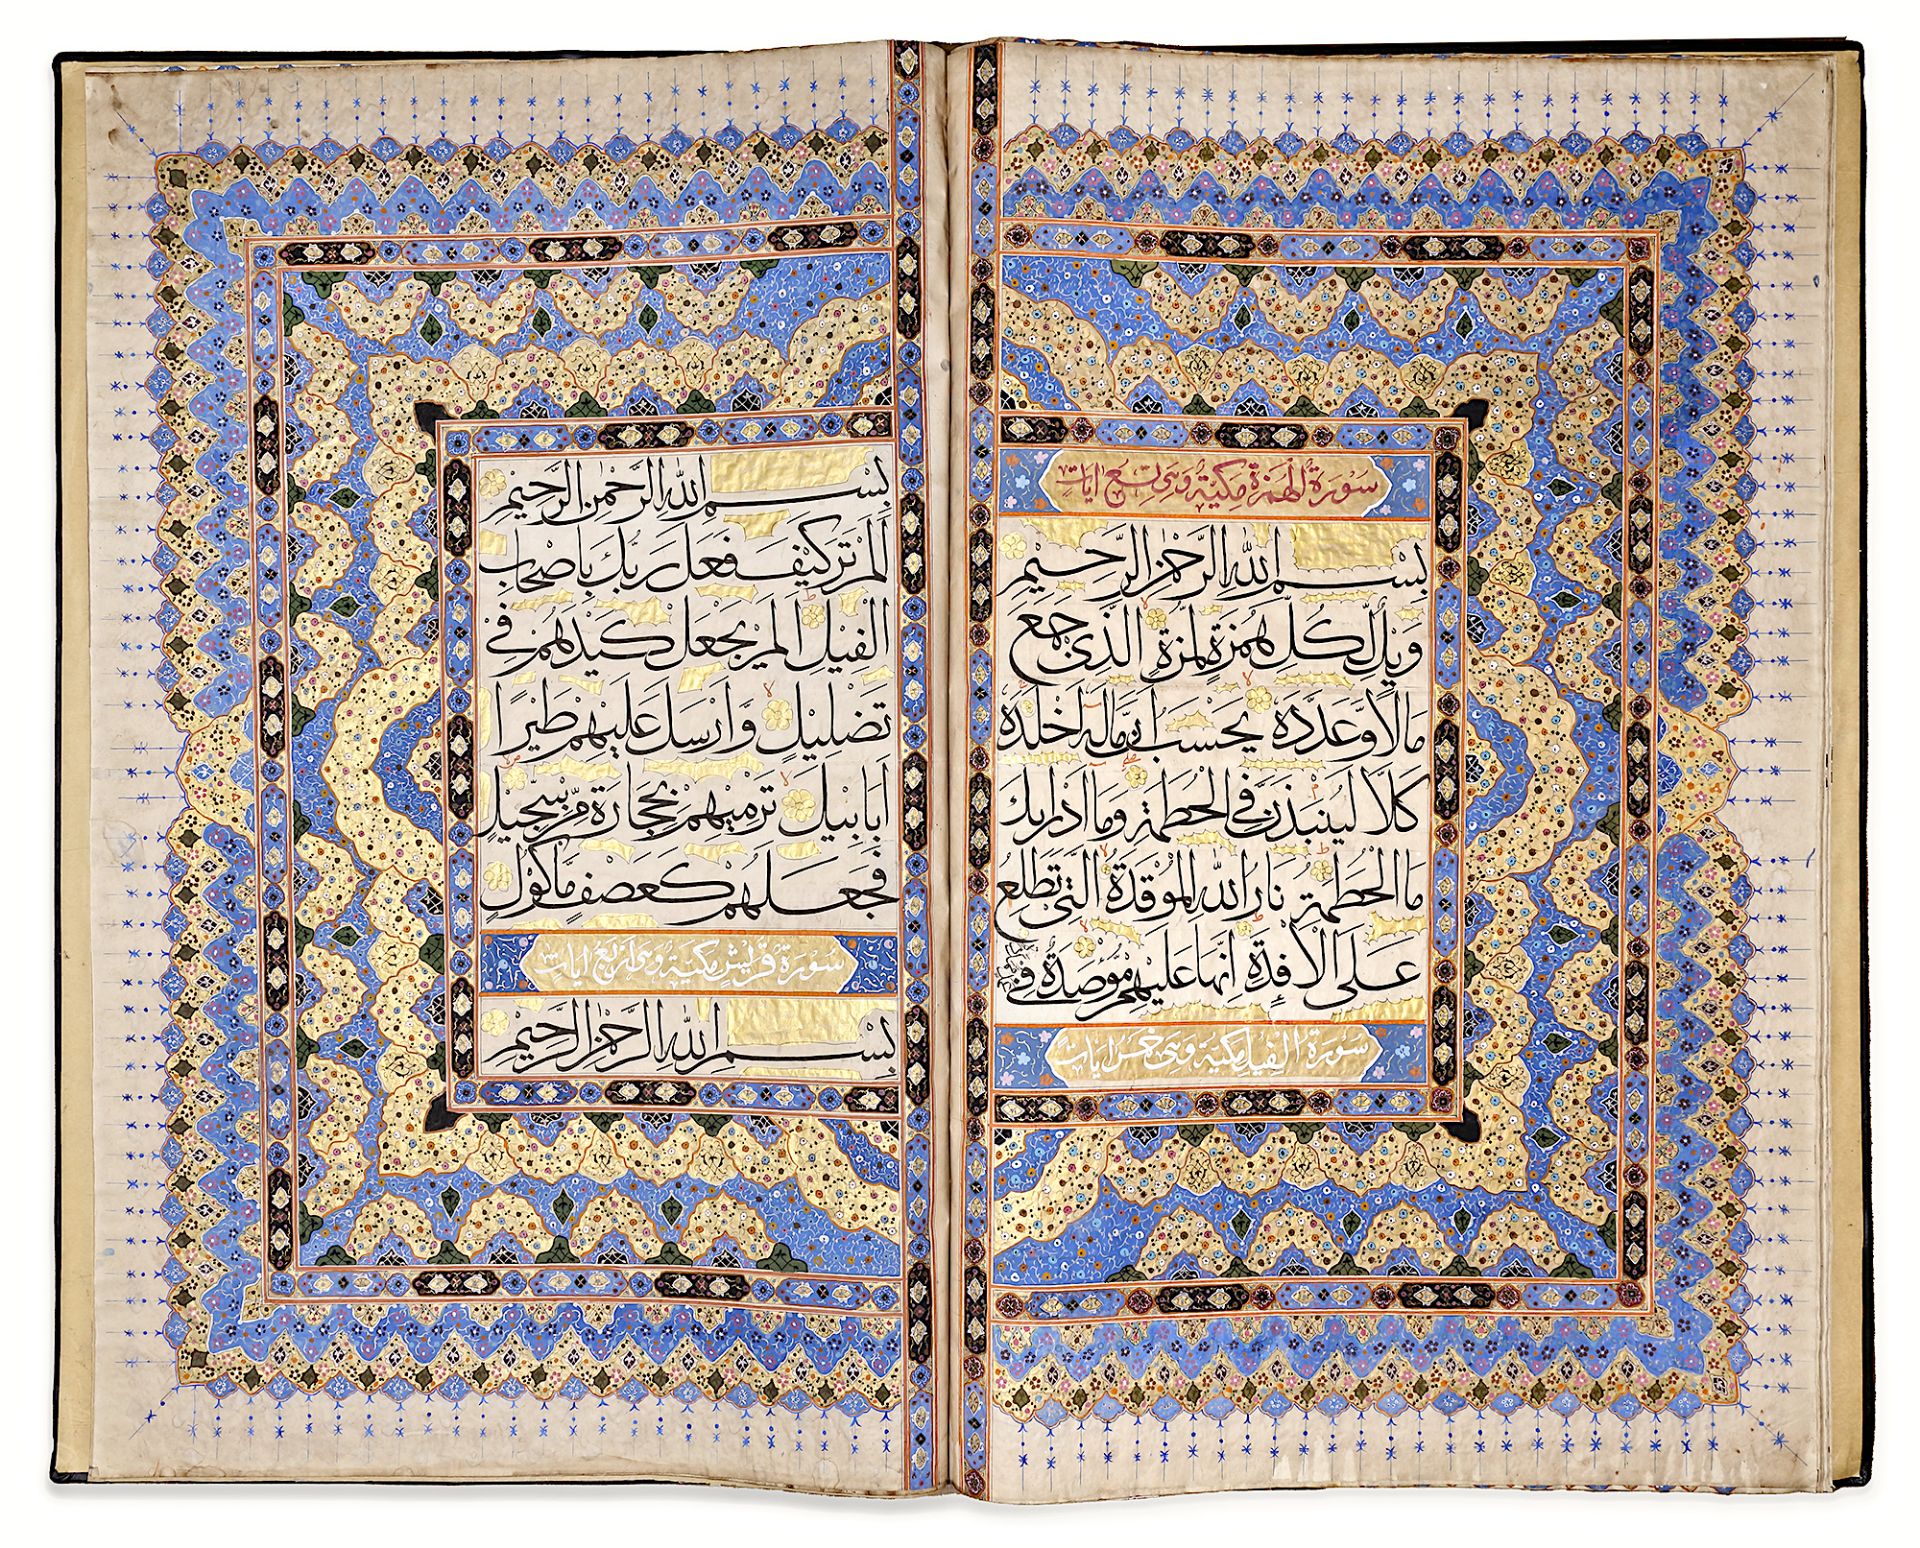 سورة الهمزة مكية وهى تسع ايات
بسم الله الرحمن الرحيم
ويل لكل همزة لمزة الذى جمع
مالا وعدده يحسب ان ماله اخلده
كلا لينبذن فى الحطمة وما ادريك
ما الحطمة نار الله الموقدة التى تطلع
على الافدة انها عليهم مؤصدة فى
سورة الفيل مكية وهى خمس ايات
بسم الله الرحمن الرحيم
الم تر كيف فعل ربك باصحاب
الفيل الم يجعل كيدهم فى
تضليل وارسل عليهم طيرا
ابابيل ترميهم بحجارة من سجيل
فجعلهم كعصف ماكول
سورة قريش مكية وهى اربع ايات
بسم الله الرحمن الرحيم